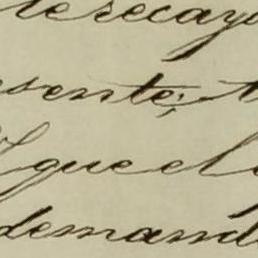 te recayo
sente;
Y que el
demand